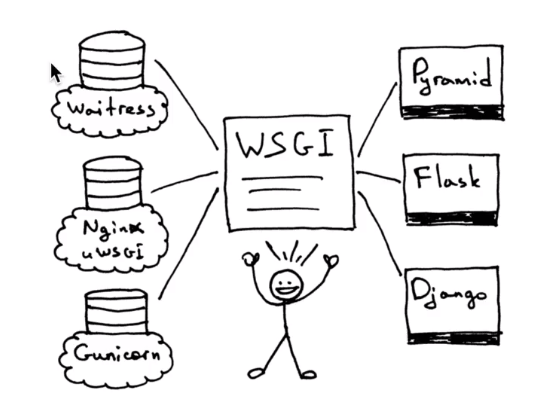 Waitress
Nginx
uWSGI
Gunicorn
WSGI
Pyramid
Flask
Django